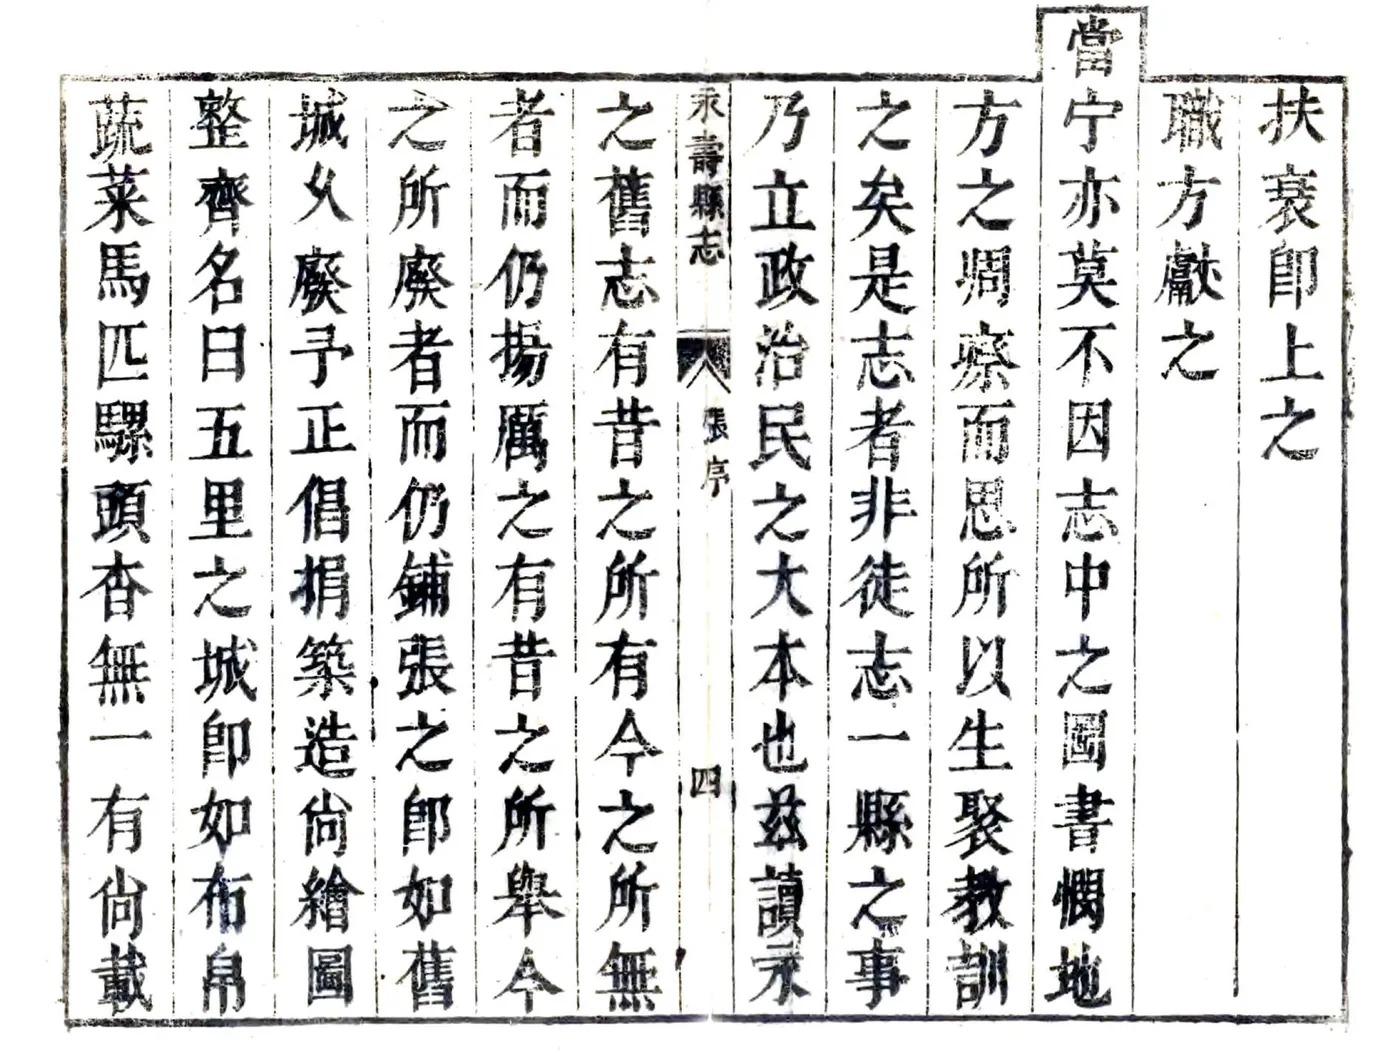 扶衰即上之
職方獻之
當宁亦莫不因志中之圖書憫地
方之凋瘵而思所以生聚教訓
之矣是志者非徒志一縣之事
乃立政治民之大本也茲讀永
永壽縣志
張序
四
之舊志有昔之所有今之所無
者而仍揚厲之有昔之所舉今
之所廢者而仍鋪張之即如舊
城久廢予正倡捐築造尚繪圖
整齊名曰五里之城即如布帛
蔬菜馬匹騾頭杳無一有尚載